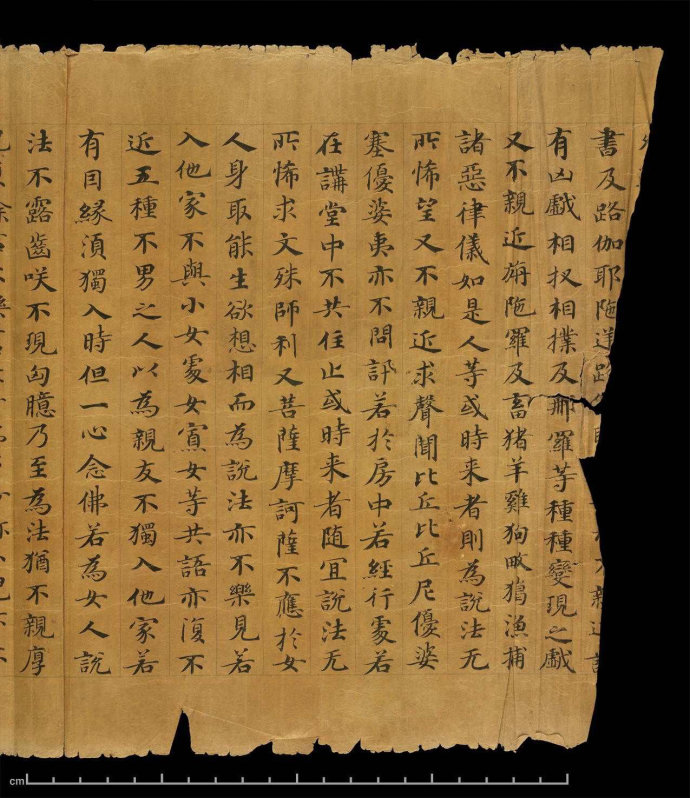 書及路伽耶陁逆路
不親近諸
有凶戲相扠相撲及那羅等種種變現之戲
又不親近旃陁羅及畜猪羊雞狗畋獦漁捕
諸惡律儀如是人等或時来者則為說法无
所悕望又不親近求聲聞比丘比丘尼優婆
塞優婆夷亦不問訊若於房中若經行處若
在講堂中不共住止或時来者随宜說法无
所悕求文殊師利又菩薩摩訶薩不應於女
人身取能生欲想相而為說法亦不樂見若
入他家不與小女處女寡女等共語亦復不
近五種不男之人以為親友不獨入他家若
有因緣湏獨入時但一心念佛若為女人說
法不露齒咲不現匈臆乃至為法猶不親厚
cm